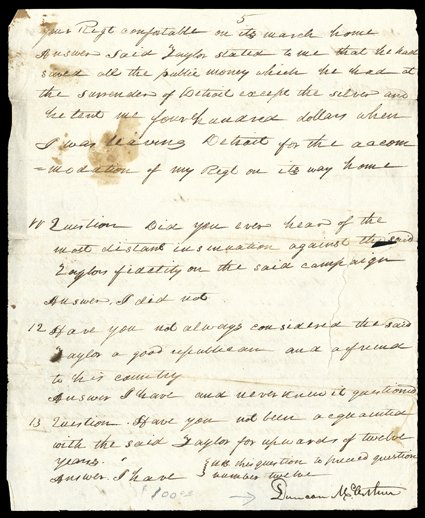 5
your Regt comfortable on its march home
Answer Said Taylor stated to me that he had
saved all the public money which he had at
the surrender of Detroit except the silver and
he lent me four hundred dollars when
I was leaving Detroit for the accom
=modation of my Regt on its way home
11 Question Did you ever hear of the
most distant insinuation against the said
Taylors fidelity on the said campaign
Answer. I did not
12 Have you not always considered the said
Taylor a good republican and a friend
to his country
Answer I have and never knew it questioned
13 Question. Have you not been acquainted
with the said Taylor for upwards of twelve
years.
Answer. I have
NB this question to preceed question
number twelve
Duncan McArthur